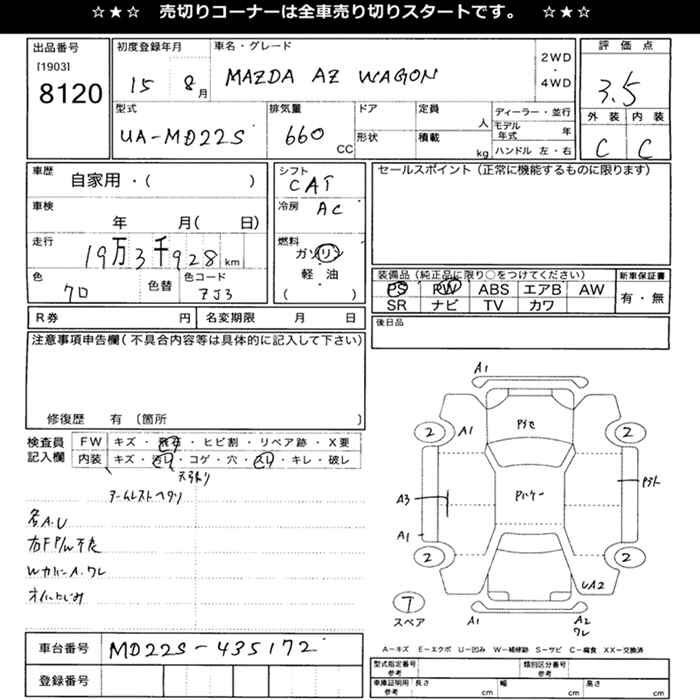 ☆★☆ 売切りコーナーは全車売り切りスタートです。 ☆★☆
出品番号
[1903]
8120
初度登録年月
15 8月
車名・グレード
MAZDA AZ WAGON
2WD
・
4WD
評価点
3.5
外装 内装
C C
型式
UA-MD22S
排気量
660 CC
ドア
形状
定員
人
積載
kg
ディーラー・並行
モデル年式 年
ハンドル 左・右
車歴
自家用・( )
車検
年 月( 日)
走行
19万3千928km
色
クロ
色替
色コード
ZJ3
シフト
CAT
冷房
AC
燃料
ガソリン
軽油
( )
セールスポイント(正常に機能するものに限ります)
装備品(純正品に限り○をつけてください)
PS PW ABS エアB AW
SR ナビ TV カワ
新車保証書
有・無
R券 円
名変期限 月 日
後日品
注意事項申告欄(不具合内容等は具体的に記入して下さい)
修復歴 有 〔箇所 〕
検査員
記入欄
FW キズ・飛石・ヒビ割・リペア跡・X要
内装 キズ・汚レ・コゲ・穴・スレ・キレ・破レ
天張り
アームレストヘタリ
各A.U
右FP/W不良
WカバーA.ワレ
オイルにじみ
A1
2 A1 2
A3
A1
2 2
UA2
7
スペア
A1
A2
ワレ
車台番号
MD22S-435172
登録番号
A-キズ E-エクボ U-凹み W-補修跡 S-サビ C-腐食 XX-交換済
型式指定番号
参考
類別区分番号
参考
車庫証明用
参考
長さ cm
幅 cm
高さ cm